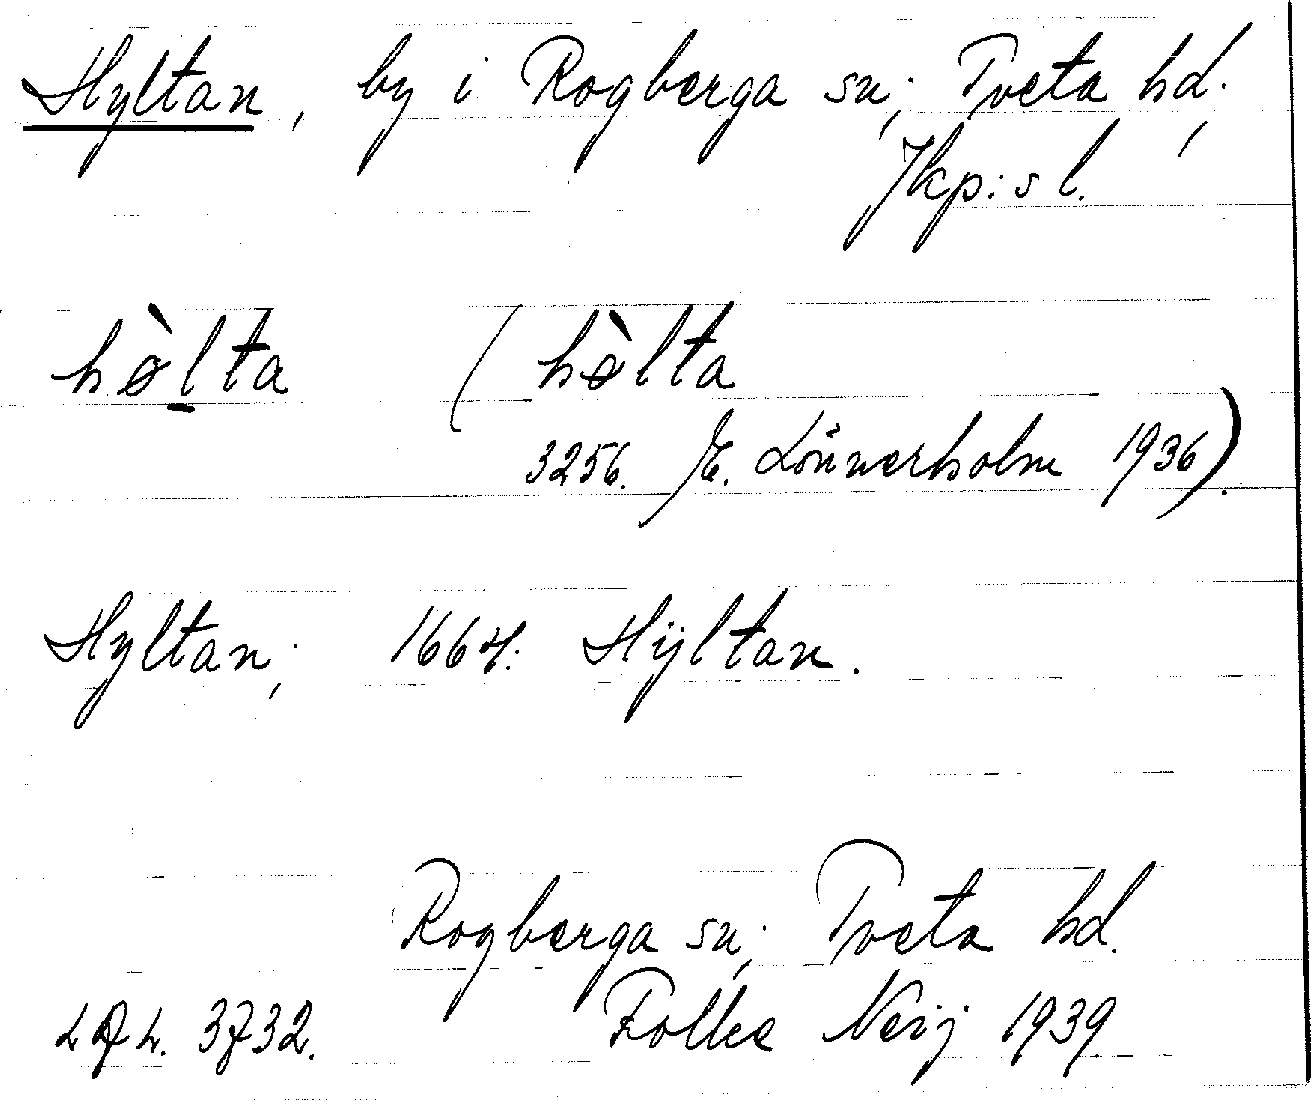 Hyltan, by i Rogberga sn; Tveta hd;
Jkp:s l.
hø̀l̠ta (hø̀lta
3256. E. Lönnerholm 1936).
Hyltan; 1664: Hÿltan.
Rogberga sn; Tveta hd.
3732. Folke Neij 1939